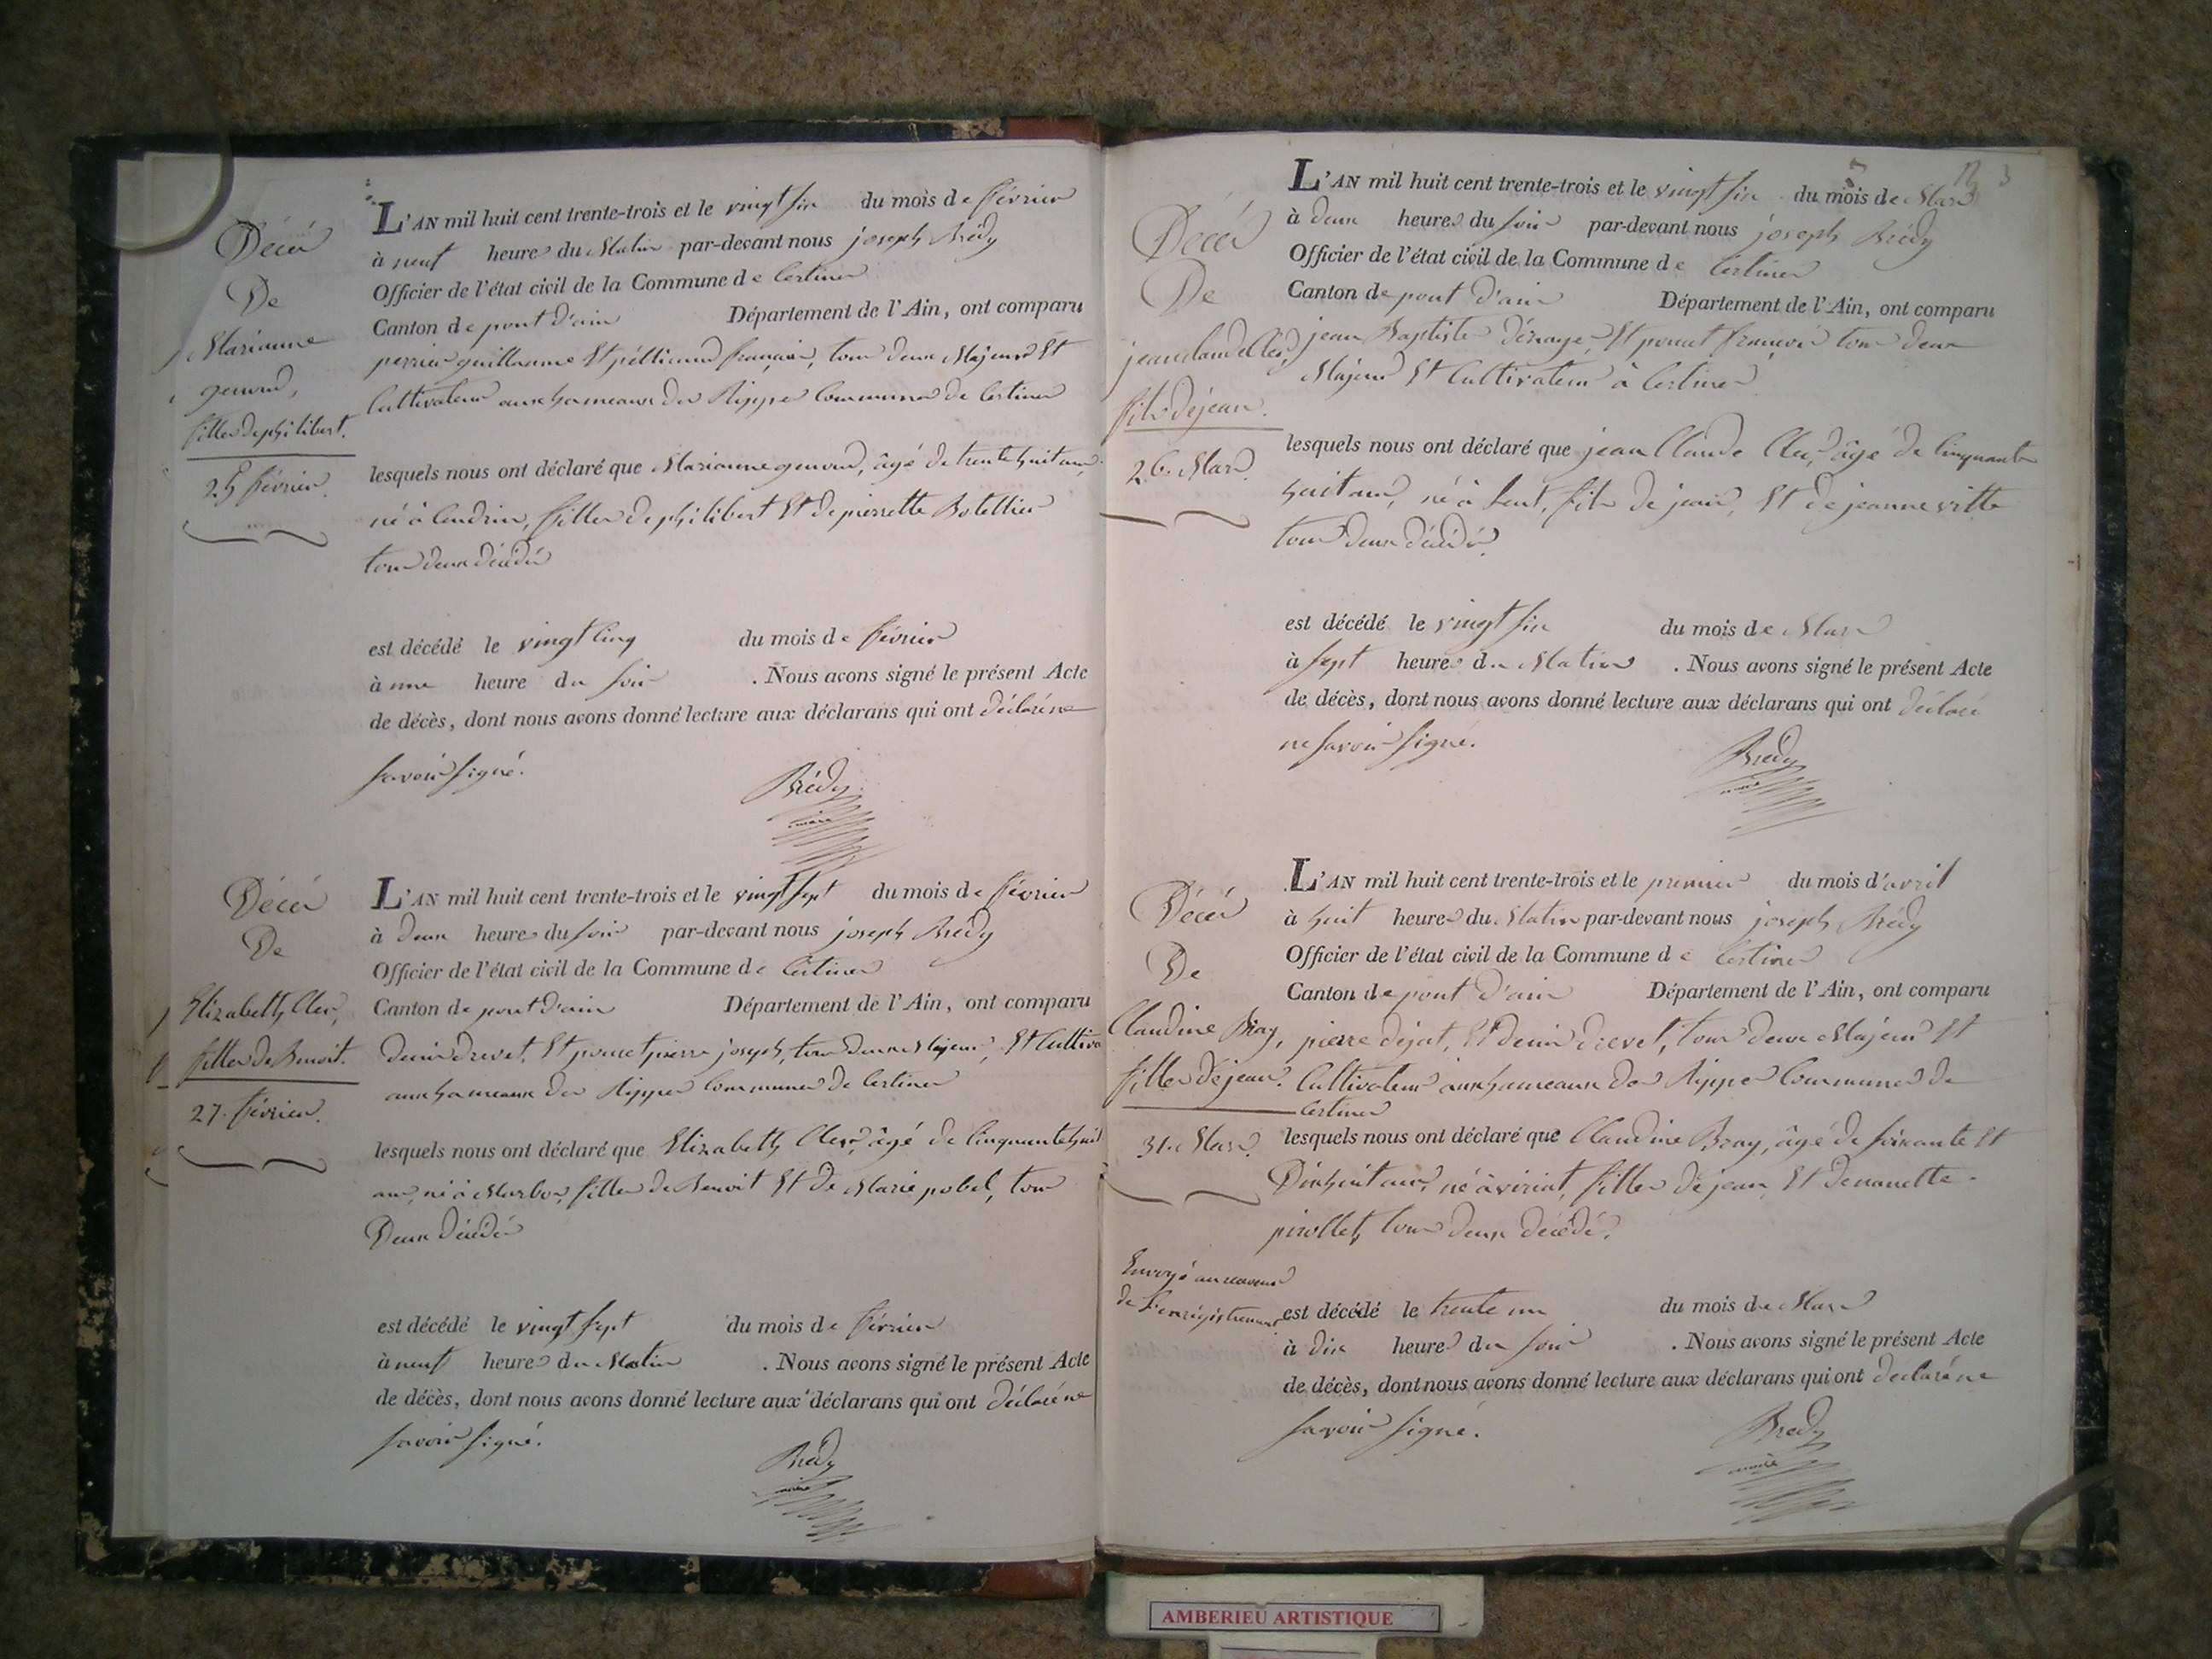 Décès
De
Marianne
genoud,
fille de philibert.
25 février.
L'AN mil huit cent trente-trois et le vingt six du mois de février
à neuf heures du Matin par-devant nous joseph Brédy
Officier de l'état civil de la Commune de Certines
Canton de pont d'ain Département de l'Ain, ont comparu
perrier guillaume Et français, tous deux Majeurs Et
Cultivateurs aux hameaux des Rippes Commune de Certines
lesquels nous ont déclaré que Marianne genoud, âgé de trente huit ans,
né à fille de philibert Et de pierrette Botellier
tous deux décédés
est décédé le vingt cinq du mois de février
à une heure du soir . Nous avons signé le présent Acte
de décès, dont nous avons donné lecture aux déclarans qui ont déclaré ne
savoir signé.
Brédy
maire
Décès
De
Elizabeth Clerc,
fille de Benoit.
27. février.
L'AN mil huit cent trente-trois et le vingt sept du mois de février
à deux heures du soir par-devant nous joseph Brédy
Officier de l'état civil de la Commune de Certines
Canton de pont d'ain Département de l'Ain, ont comparu
denis drevet, Et poncet pierre joseph, tous deux Majeurs, Et Cultiva
aux hameaux des Rippes Commune de Certines
lesquels nous ont déclaré que Elizabeth Clerc, âgé de cinquante huit
ans, né à Marboz, fille de Benoit Et de Marie pobel, tous
Deux décédés
est décédé le vingt sept du mois de février
à neuf heures du Matin . Nous avons signé le présent Acte
de décès, dont nous avons donné lecture aux déclarans qui ont déclaré ne
savoir signé.
Brédy
maire
3
Décès
De
jean claude Clerc,
fils de jean.
26. Mars.
L'AN mil huit cent trente-trois et le vingt six du mois de Mars
à deux heures du soir par-devant nous joseph Brédy
Officier de l'état civil de la Commune de Certines
Canton de pont d'ain Département de l'Ain, ont comparu
jean Baptiste Et poncet françois tous deux
Majeurs Et Cultivateurs à Certines
lesquels nous ont déclaré que jean Claude Clerc, âgé de cinquante
huit ans, né à Lent, fils de jean, Et de jeanne vitte
tous deux décédés.
est décédé le vingt six du mois de Mars
à sept heures du Matin . Nous avons signé le présent Acte
de décès, dont nous avons donné lecture aux déclarans qui ont déclaré
ne savoir signé.
Brédy
maire
Décès
De
Claudine Bray,
fille de jean.
31. Mars.
L'AN mil huit cent trente-trois et le premier du mois d'avril
à huit heures du Matin par-devant nous joseph Brédy
Officier de l'état civil de la Commune de Certines
Canton de pont d'ain Département de l'Ain, ont comparu
pierre dejat, Et denis drevet, tous deux Majeurs Et
Cultivateurs aux hameaux des Rippes Commune de
Certines
lesquels nous ont déclaré que Claudine Bray, âgé de soixante Et
Dix huit ans, né à viriat, fille de jean, Et de nanette
pirollet, tous deux décédés.
Envoyé au receveur
de l'enregistrement
est décédé le trente un du mois de Mars
à dix heures du soir . Nous avons signé le présent Acte
de décès, dont nous avons donné lecture aux déclarans qui ont déclaré ne
savoir signé.
Brédy
maire
AMBERIEU ARTISTIQUE